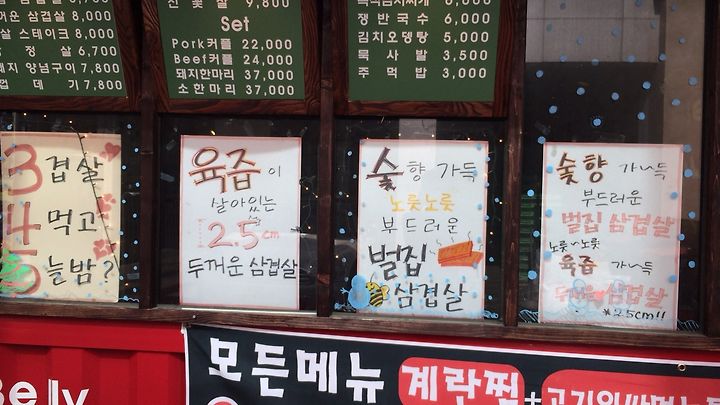 삼겹살 8,000
살 스테이크 8,000
정살 7,800
돼지 양념구이 7,800
껍데기 7,800
Set
Pork커플 22,000
Beef커플 24,000
돼지한마리 37,000
소한마리 37,000
쟁반국수 6,000
김치오뎅탕 5,000
묵사발 3,500
주먹밥 3,000
3겹살
4먹고
5늘밤?
육즙이
살아있는
2.5cm
두꺼운 삼겹살
숯향 가득
노릇노릇
부드러운
벌집
삼겹살
숯향 가~득
부드러운
벌집 삼겹살
노릇~노릇
육즙 가~득
두꺼운 삼겹살
*2.5cm!!
Belly
모든메뉴 계란찜+